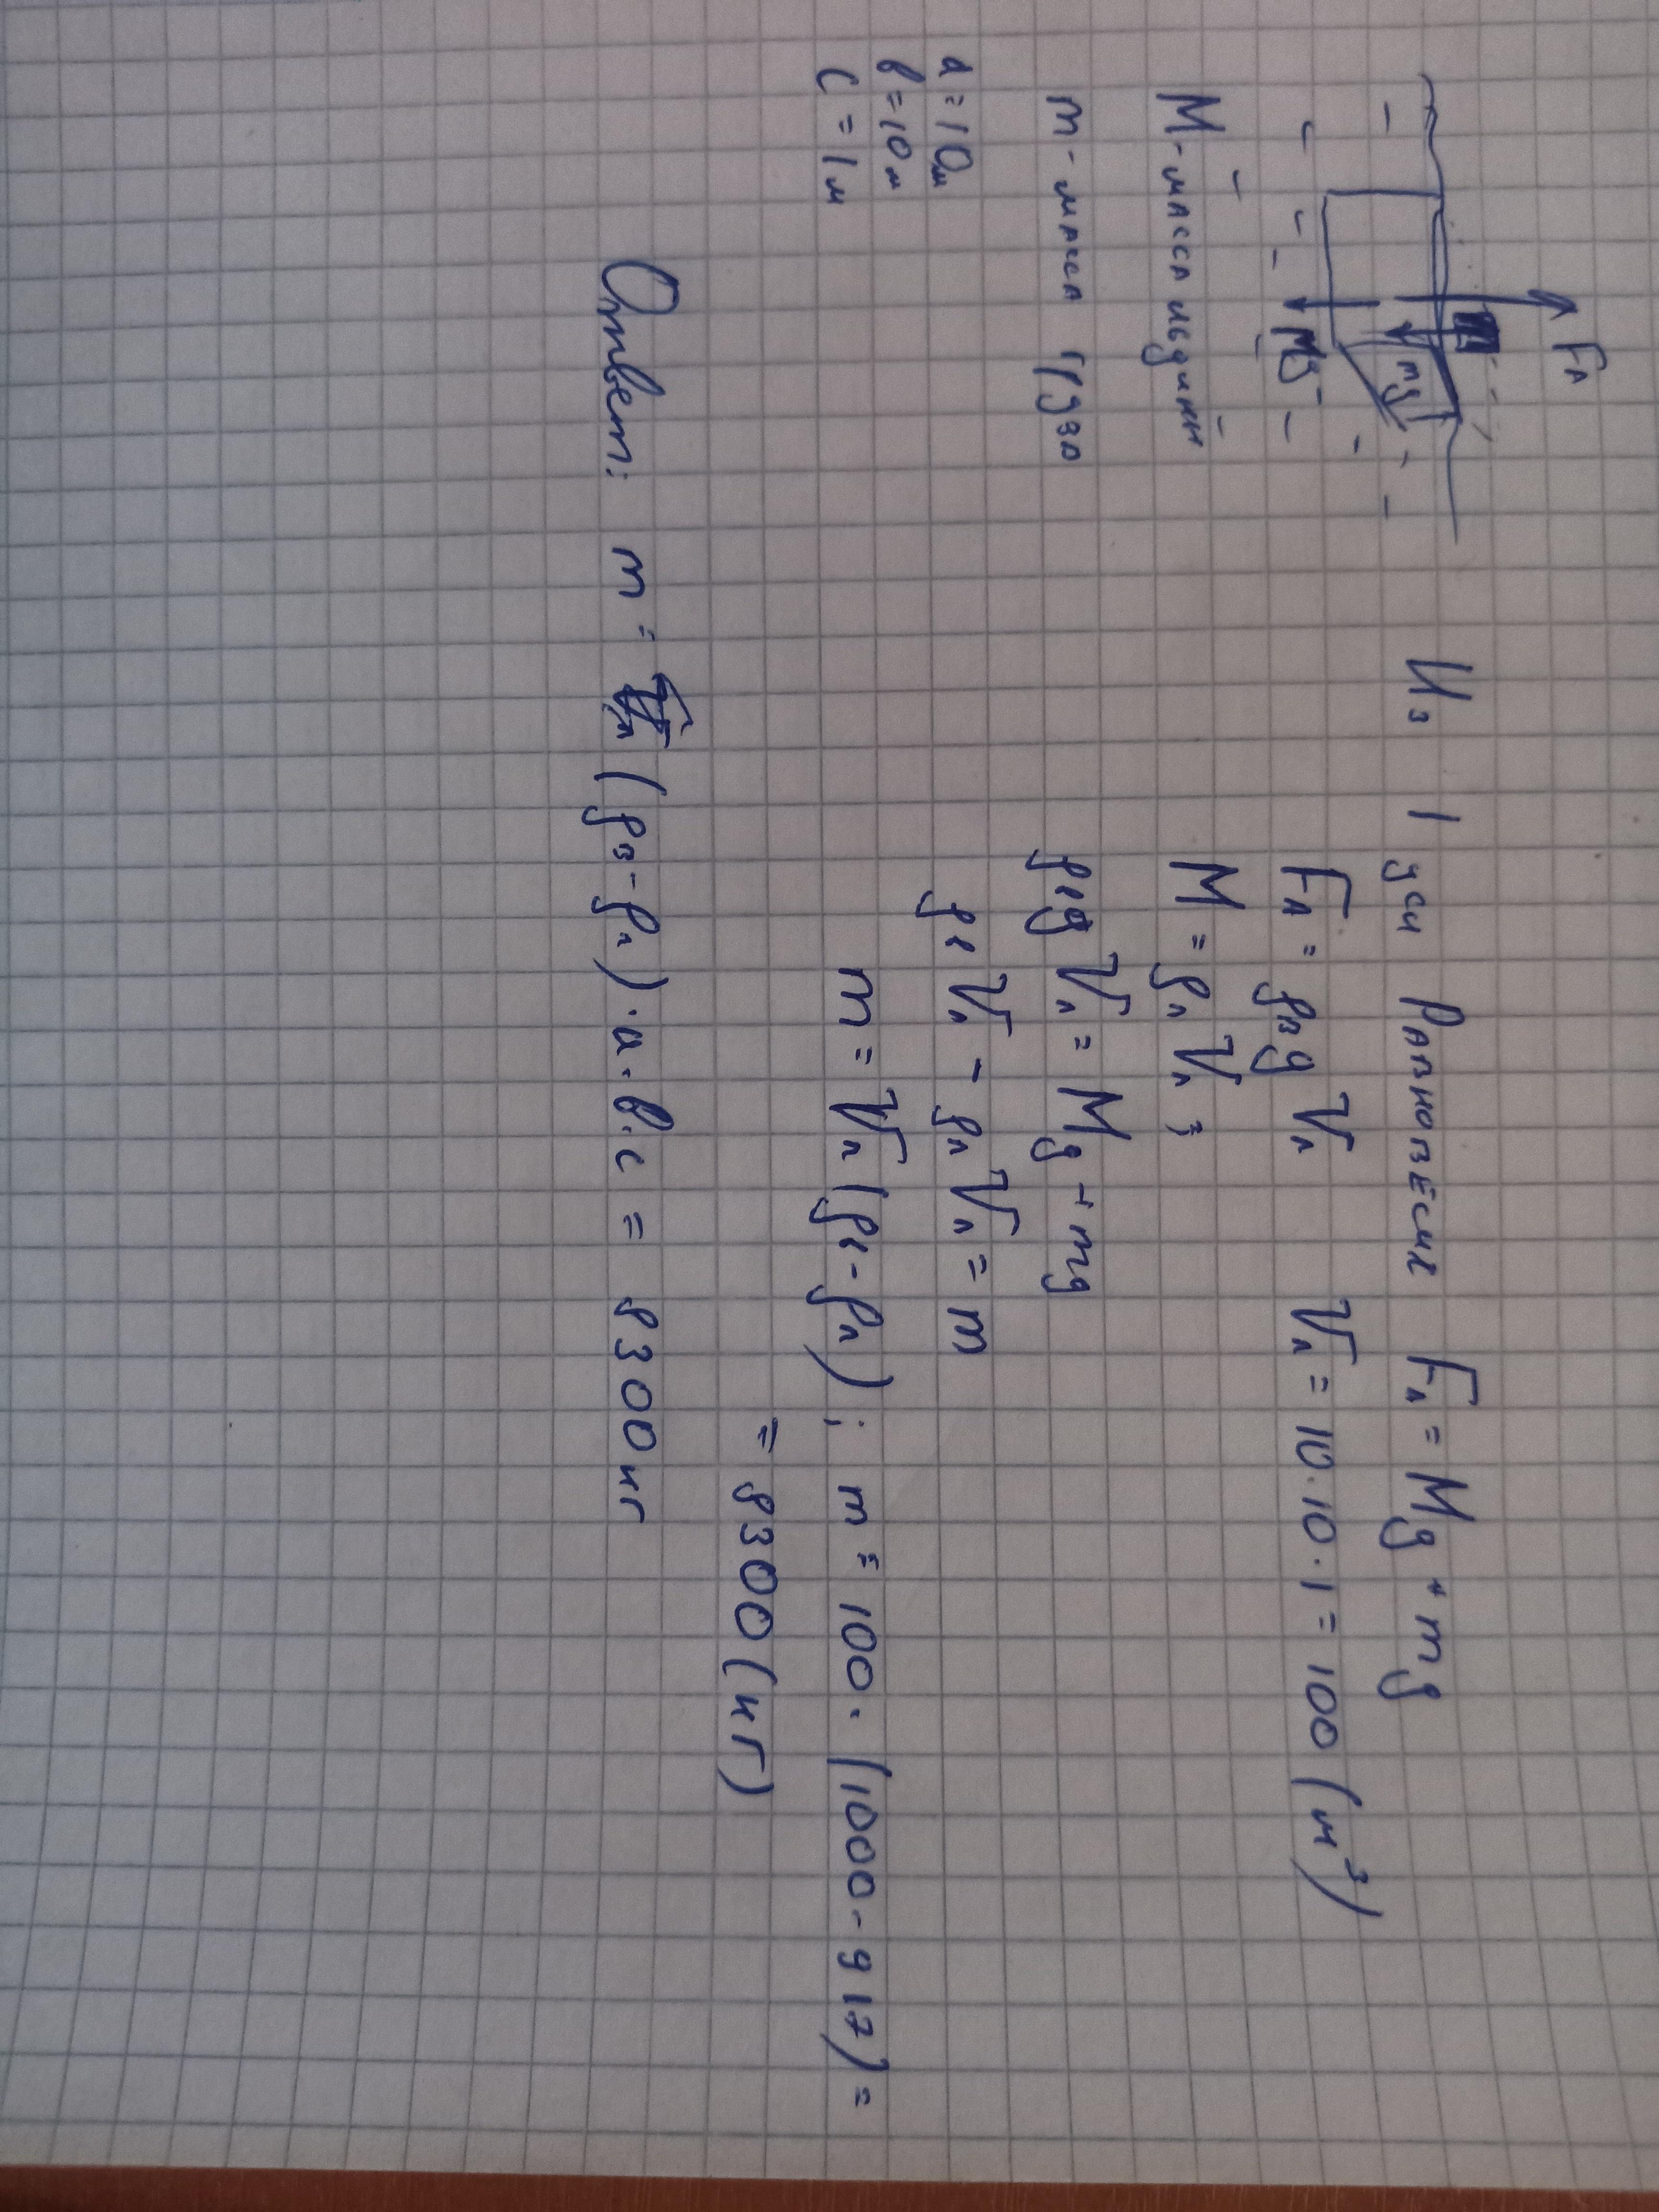 Fл
mg
Mg
M - масса льдины
m - масса груза
a = 10м
b = 10м
c = 1м
Из 1 усл равновесия Fл = Mg + mg
Fл = ρв g Vл Vл = 10·10·1 = 100 (м³)
M = ρл Vл ;
ρв g Vл = Mg + mg
ρв Vл - ρл Vл = m
m = Vл (ρв - ρл) ; m = 100 · (1000 - 917) =
= 8300 (кг)
Ответ: m = (ρв - ρл) · a · b · c = 8300 кг